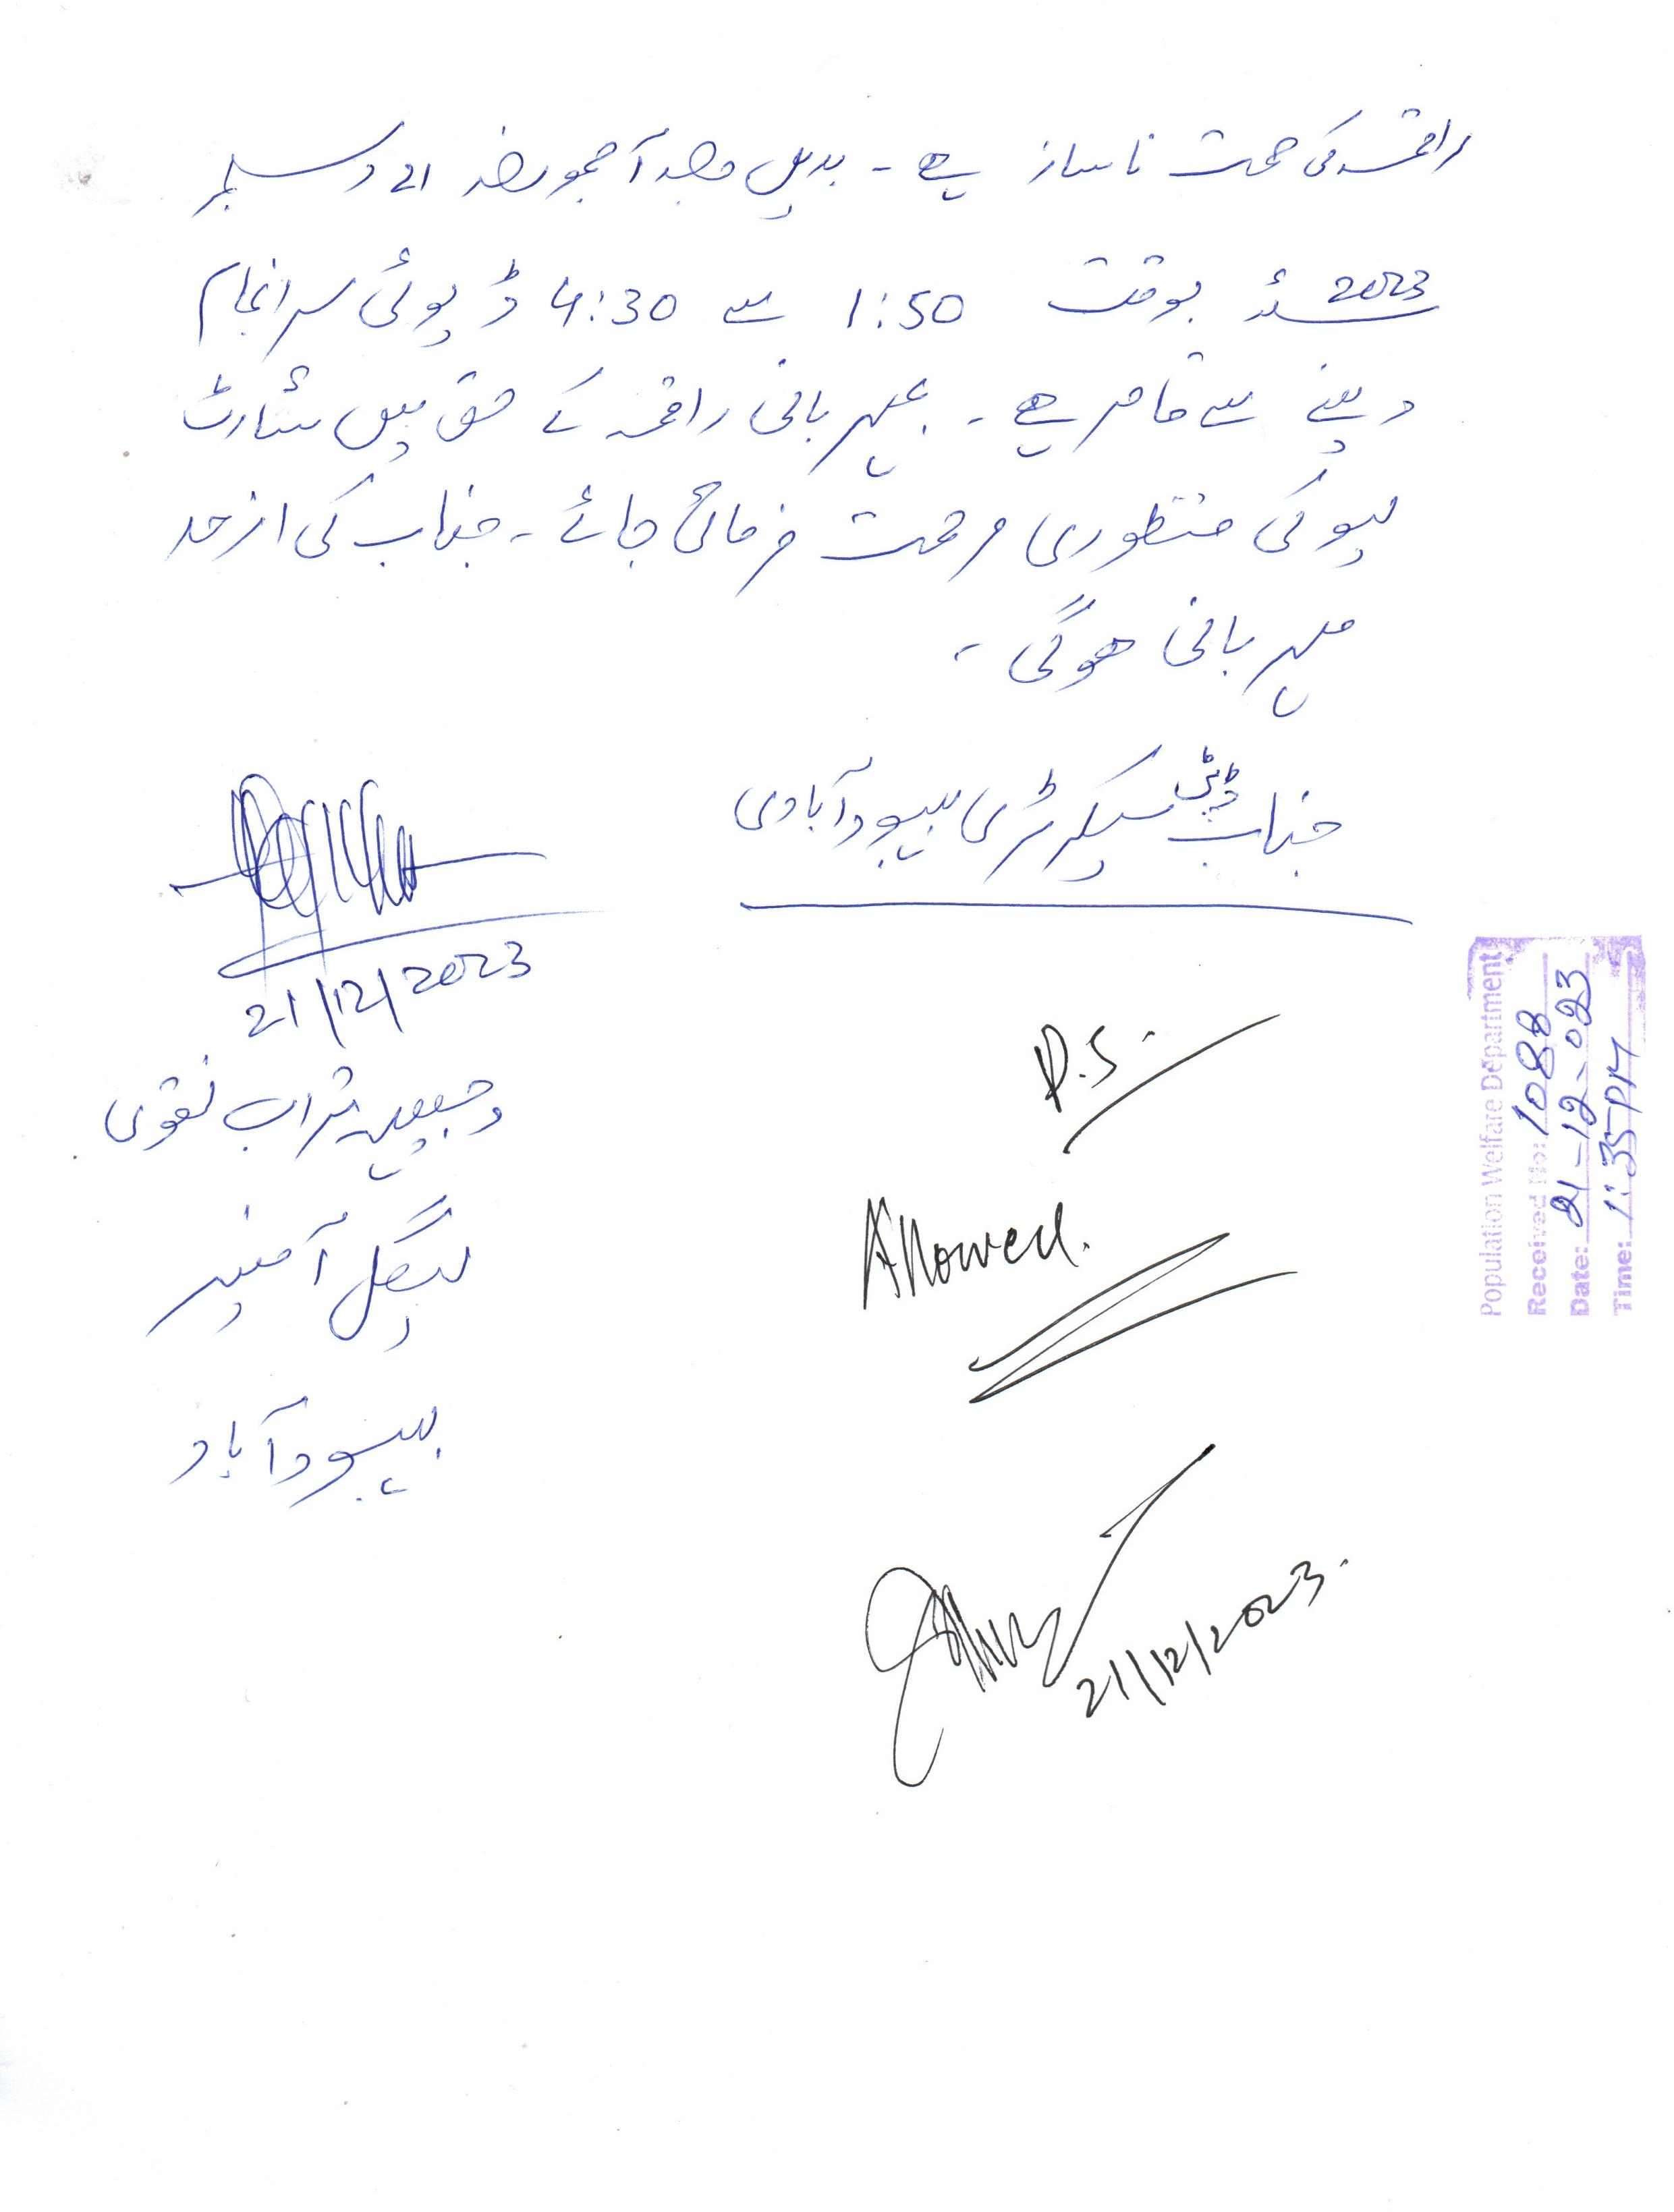 راقمہ کی صحت ناساز ہے۔ بدیں وجہ آج مورخہ 21 دسمبر
2023ء بوقت 1:50 سے 4:30 ڈیوٹی سرانجام
دینے سے قاصر ہے۔ بمہربانی راقمہ کے حق میں شارٹ
لیو کی منظوری مرحمت فرمائی جائے۔ جناب کی ازحد
مہربانی ہوگی۔
جناب ڈپٹی سیکرٹری بہبود آبادی
21/12/2023
وجیہہ تراب نقوی
لیگل آفیسر
بہبود آباد
P.S.
Allowed.
21/12/2023.
Population Welfare Department
Received No: 1088
Date: 21-12-023
Time: 1:35PM